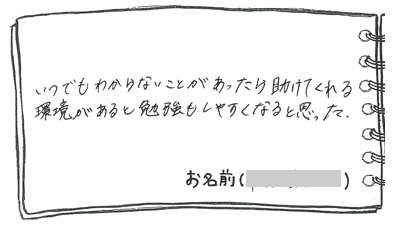 いつでもわからないことがあったら助けてくれる
環境があると勉強もしやすくなると思った.
お名前( )